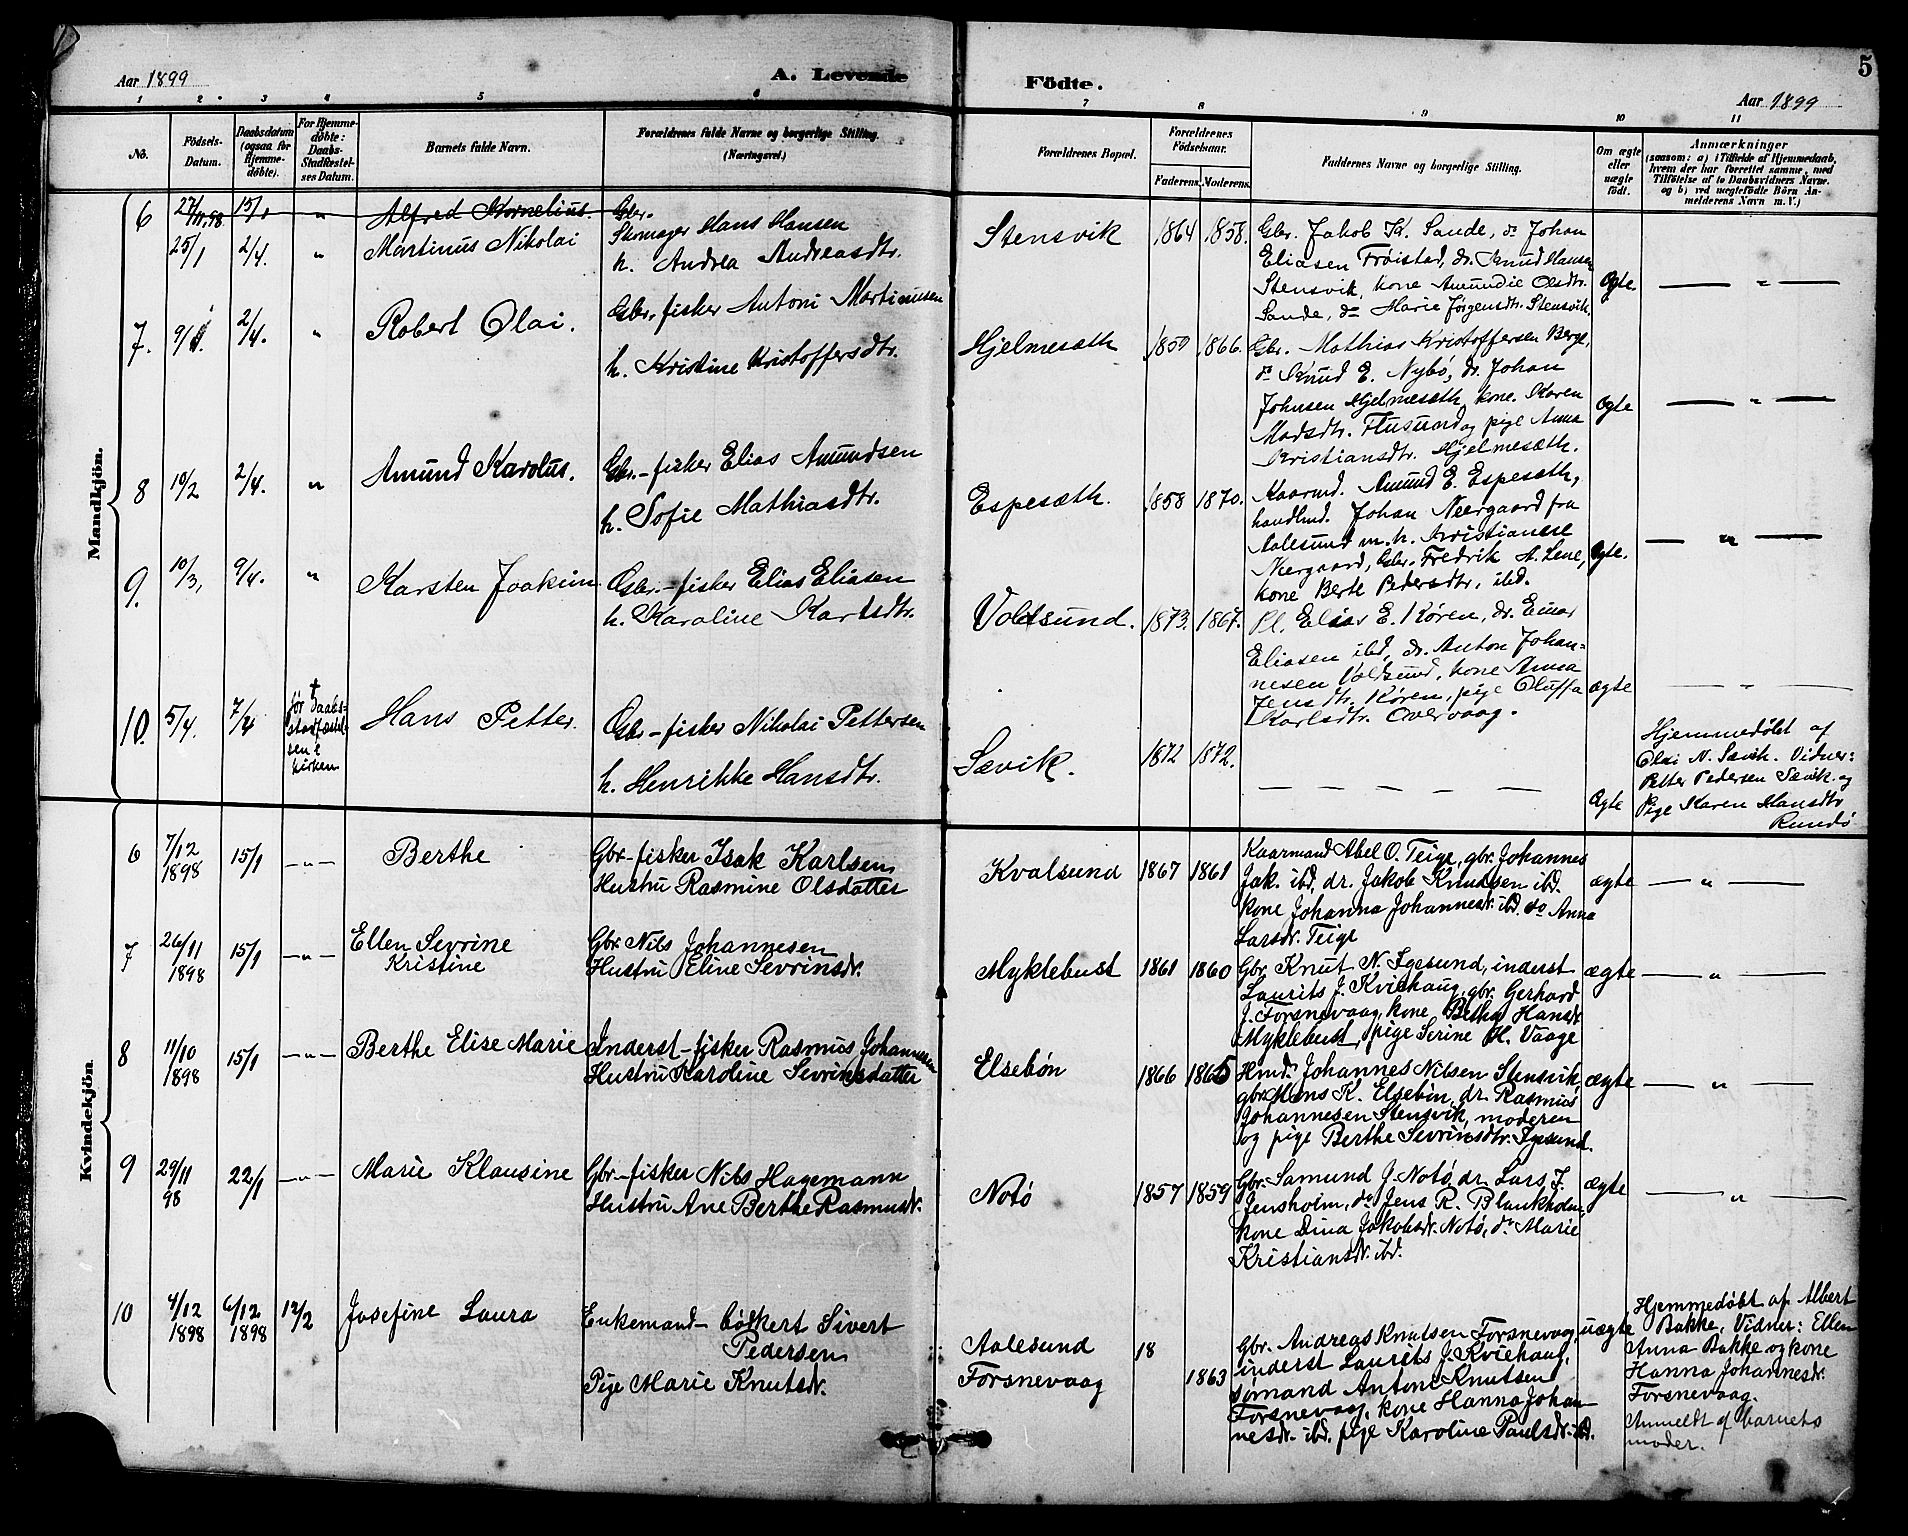 Aar 1899
A. Levende
Födte.
5
Aar 1899
1 2 3 4 5 6 7 8 9 10 11
No.
Födsels-Datum.
Daabsdatum (ogsaa for Hjemme-döbte).
For Hjemme-döbte: Daabs-Stadfæstel-ses Datum.
Barnets fulde Navn.
Forældrenes fulde Navne og borgerlige Stilling (Næringsvei.)
Forældrenes Bopæl.
Forældrenes Födselsaar.
Faderens. Moderens.
Faddernes Navne og borgerlige Stilling.
Om ægte eller uægte födt.
Anmærkninger
(saasom: a) i Tilfælde af Hjemmedaab, hvem der har forrettet samme, med Tilföielse af to Daabsvidners Navne, og b) ved uægtefödte Börn Anmelderens Navn m. V.)
Mandkjön.
6 27/11,98 15/1 " Alfred Kornelius. Gbr.
25/1 2/4. " Martinus Nikolai
Skomager Hans Hansen
h. Andrea Andreasdtr.
Stensvik 1864 1858.
Gbr. Jakob K. Sande, do Johan
Eliasen Frøistad, dr. Knud Hansen
Stensvik, kone Amundie Olsdtr.
Sande, do Marie Jørgensdtr. Stensvik.
Ægte — " —
7. 9/1. 2/4. " Robert Olai.
Gbr.-fisker Antoni Martinusen
h. Kristine Kristoffersdtr.
Hjelmesæth 1859 1866.
Gbr. Mathias Kristoffersen Berge,
do Knud E. Nybø, dr. Johan
Johnsen Hjelmesæth, kone. Karen
Madsdtr. Flusund og pige Anna
Kristiansdtr. Hjelmesæth.
Ægte — " —
8 19/2 2/4. " Amund Karolus.
Gbr.-fisker Elias Amundsen
h. Sofie Mathiasdtr.
Espesæth. 1858 1870.
Kaarmd. Amund E. Espesæth,
handlmd. Johan Neergaard fra
Aalesund m. h. Kristianese
Neergaard, Gbr. Fredrik A. Lene,
kone Berte Pedersdtr. ibd.
Ægte. — " —
9. 10/3, 9/4. " Karsten Joakim
Gbr.-fisker Elias Eliasen
h. Karoline Karlsdtr.
Voldsund. 1873. 1867.
Pl. Elias E. Kören, dr. Einar
Eliasen ibd, dr. Anton Johan-
nesen Voldsund, kone Anna
Jensdtr. Kören, pige Oluffa
Karlsdtr. Overvaag.
ægte — " —
10. 5/4. 7/4
† før Daabs-
stadfæstel-
sen i
kirken
Hans Petter.
Gbr.-fisker Nikolai Pettersen
h. Henrikke Hansdtr.
Sævik. 1872 1872.
— — — — — —
Ægte
Hjemmedøbt af
Olai N. Sævik. Vidner:
Petter Pedersen Sævik og
Pige Karen Hansdtr
Rundö
Kvindekjön
6 7/12 1898 15/1 —"— Berthe
Gbr-fisker Isak Karlsen
Hustru Rasmine Olsdatter
Kvalsund 1867 1861
Kaarmand Abel O. Teige, gbr. Johannes
Jak. ibd, dr. Jakob Knudsen ibd.
kone Johanna Johannesdr. ibd. do Anna
Larsdr. Teige
ægte — " —
7 26/11 1898 15/1 —"— Ellen Sevrine
Kristine
Gbr Nils Johannesen
Hustru Eline Sevrinsdr.
Myklebust 1861 1860
Gbr. Knut N. Igesund, inderst
Laurits J. Kviehaug, gbr. Gerhard
J. Forsnevaag, kone Betha Hansdr
Myklebust, pige Serine H. Vaage
ægte — " —
8 11/10 1898 15/1 —"— Berthe Elise Marie
Inderst-fisker Rasmus Johannesen
Hustru Karoline Sevrinsdatter
Elsebön 1866 1865
Hmd. Johannes Nilsen Stensvik,
gbr. Hans K. Elsebön, dr. Rasmus
Johannesen Stensvik, moderen
og pige Berthe Sevrinsdtr. Igesund.
ægte — " —
9 29/11 98 22/1 —"— Marie Klausine
Gbr-fisker Nils Hagemann
Hustru Ane Berthe Rasmusdr.
Notö 1857 1859
Gbr. Samund J. Notö, dr. Lars J.
Jensholm, do Jens R. Blankholm,
kone Dina Jakobsdr. Notö, do Marie
Kristiansdr. ibd.
ægte — " —
10 4/12 1898 6/12 1898 12/2 Josefine Laura
Enkemand-bödkert Sivert
Pedersen
Pige Marie Knutsdr.
Aalesund 18
Forsnevaag 1863
Gbr. Andreas Knutsen Forsnevaag,
inderst Laurits J. Kviehaug,
sömand Anton Knutsen
Forsnevaag, kone Hanna Johan
nesdr. ibd, pige Karoline Paulsdr. ibd.
uægte
Hjemmedöbt af Albert
Bakke, Vidner: Ellen
Anna Bakke og kone
Hanna Johannesdr.
Forsnevaag.
Anmeldt af barnets
moder.